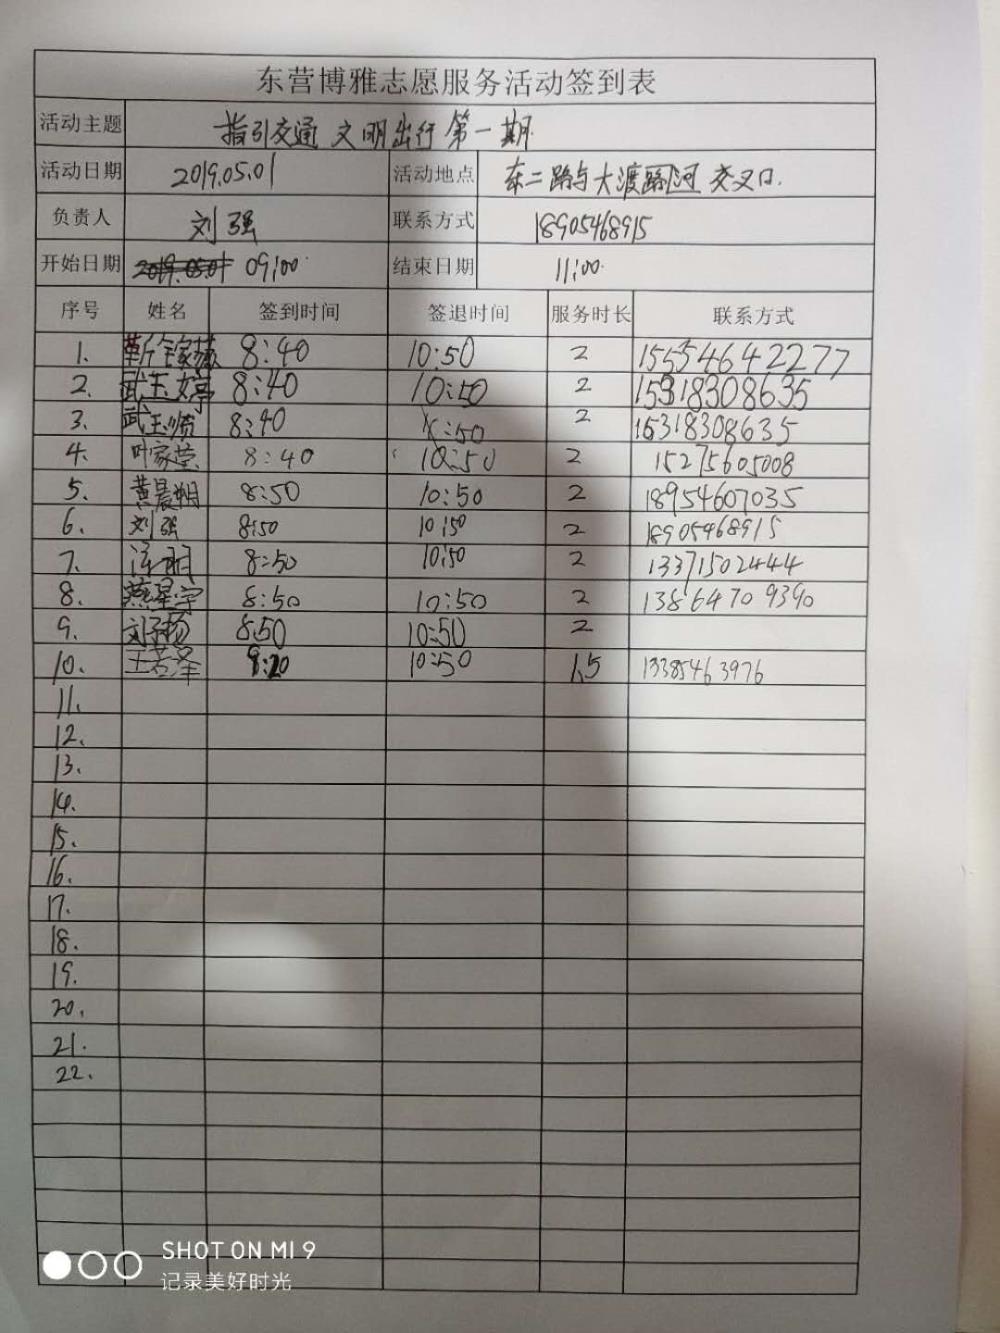 东营博雅志愿服务活动签到表
活动主题 指引交通 文明出行 第一期
活动日期 2019.05.01 活动地点 东二路与大渡河 交叉口.
负责人 刘强 联系方式 18905468915
开始日期 09:00 结束日期 11:00
序号 姓名 签到时间 签退时间 服务时长 联系方式
1. 8:40 10:50 2 15554642277
2. 武玉婷 8:40 10:50 2 15318308635
3. 武玉 8:40 :50 2 15318308635
4. 叶家莹 8:40 10:50 2 15275605008
5. 黄晨朔 8:50 10:50 2 18954607035
6. 刘强 8:50 10:50 2 18905468915
7. 8:50 10:50 2 13371502444
8. 燕星宇 8:50 10:50 2 13864709390
9. 刘子扬 8:50 10:50 2
10. 王若泽 10:50 1.5 13385463976
11.
12.
13.
14.
15.
16.
17.
18.
19.
20.
21.
22.
SHOT ON MI 9
记录美好时光